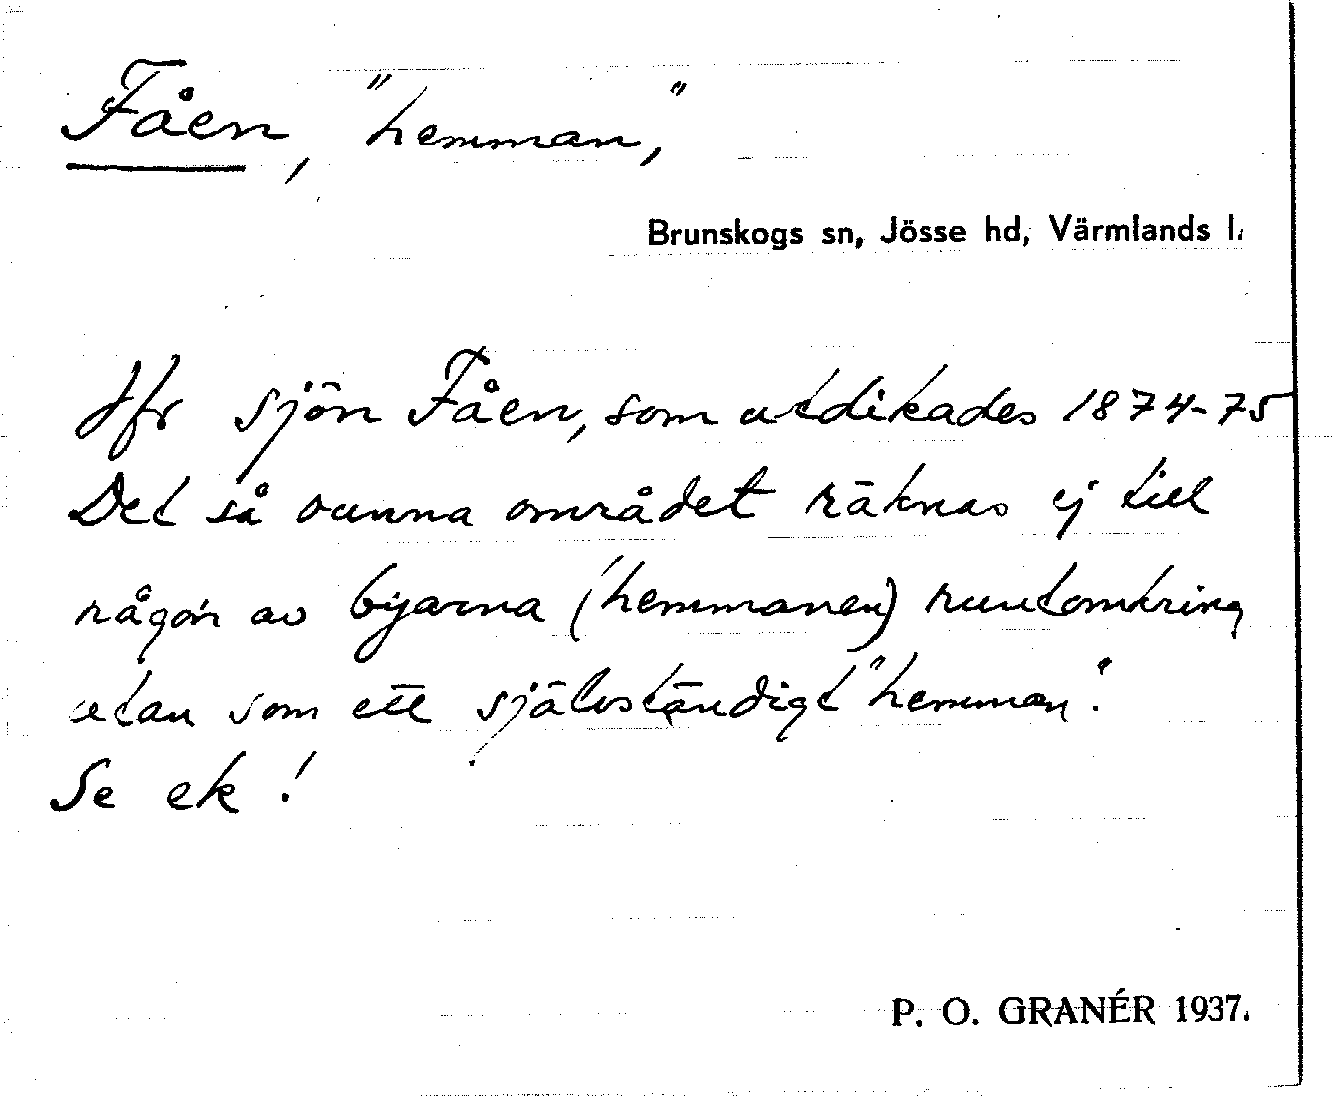 Fåen, "hemman,"
Brunskogs sn, Jösse hd, Värmlands l.
Jfr sjön Fåen, som utdikades 1874-75
Det så vunna området räknas ej till
någon av byarna (hemmanen) runtomkring
utan som ett självständigt "hemman".
Se ek!
P. O. GRANÉR 1937.